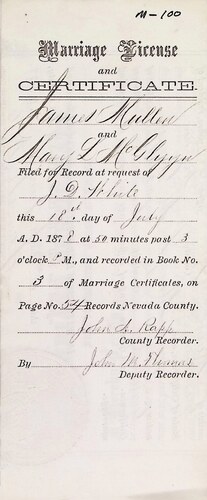 M-100
Marriage License
and
CERTIFICATE.
James Mullen
and
Mary L McGlynn
Filed for Record at request of
J. D. White
this 18th day of July
A. D. 1878 at 50 minutes past 3
o'clock P M., and recorded in Book No.
3 of Marriage Certificates, on
Page No. 54 Records Nevada County.
John A. Rapp
County Recorder.
By John M.
Deputy Recorder.